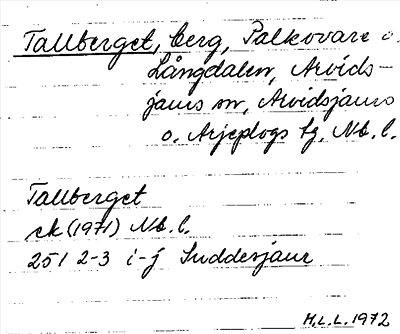 Tallberget, berg, Palkovare o.
Långdalen, Arvids-
jaurs sn, Arvidsjaurs
o. Arjeplogs tg, Nb. l.
Tallberget
ek (1971) Nb. l.
25 I 2-3 i-j Suddesjaur
H.L.L. 1972